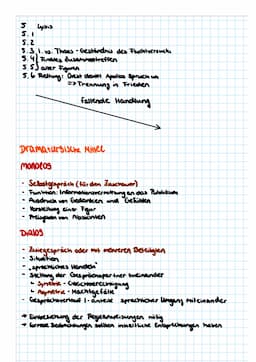 5 Lysis
5.1
5.2
5.3 1. vs. Thoas - Geständnis des Fluchtversuchs
5.4 Finales Zusammentreffen
5.5 aller Figuren
5.6 Rettung: Orest deutet Apollos Spruch um
=> Trennung in Frieden
Fallende Handlung
Dramaturgische Mittel
MONOLOG
- Selbstgespräch (für den Zuschauer)
- Funktionen: Informationsvermittlung an das Publikum
- Ausdruck von Gedanken und Gefühlen
- Vorstellung einer Figur
- Preisgabe von Absichten
DIALOG
- Zwiegespräch oder mit mehreren Beteiligten
- Situation
- "sprachliches Handeln"
- Stellung der Gesprächspartner zueinander
- Symetrie - Gleichberechtigung
- Asymetrie - Machtgefälle
- Gesprächsverlauf: sprachlicher Umgang miteinander
-> Einbeziehung der Regieanweisungen nötig
-> formale Beobachtungen sollten inhaltliche Entsprechungen haben